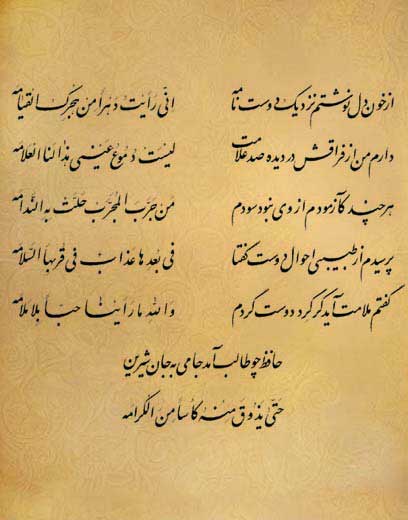 از خون دل نوشتم نزدیک دوست نامه انّی رَأیتُ دَهراً مِن هَجرِکَ القیامه
دارم من از فراقش در دیده صد علامت لیست دموع عینی هذا لنا العلامه
هر چند کازمودم از وی نبود سودم من جرّب المجرّب حلّت به الندامه
پرسیدم از طبیبی احوال دوست گفتا فی بعدها عذاب فی قربها السّلامه
گفتم ملامت آید گر گرد دوست گردم والله ما راینا حبّاً بلا ملامه
حافظ چو طالب آمد جامی به جان شیرین
حتّی یذوق منه کاساً من الکرامه